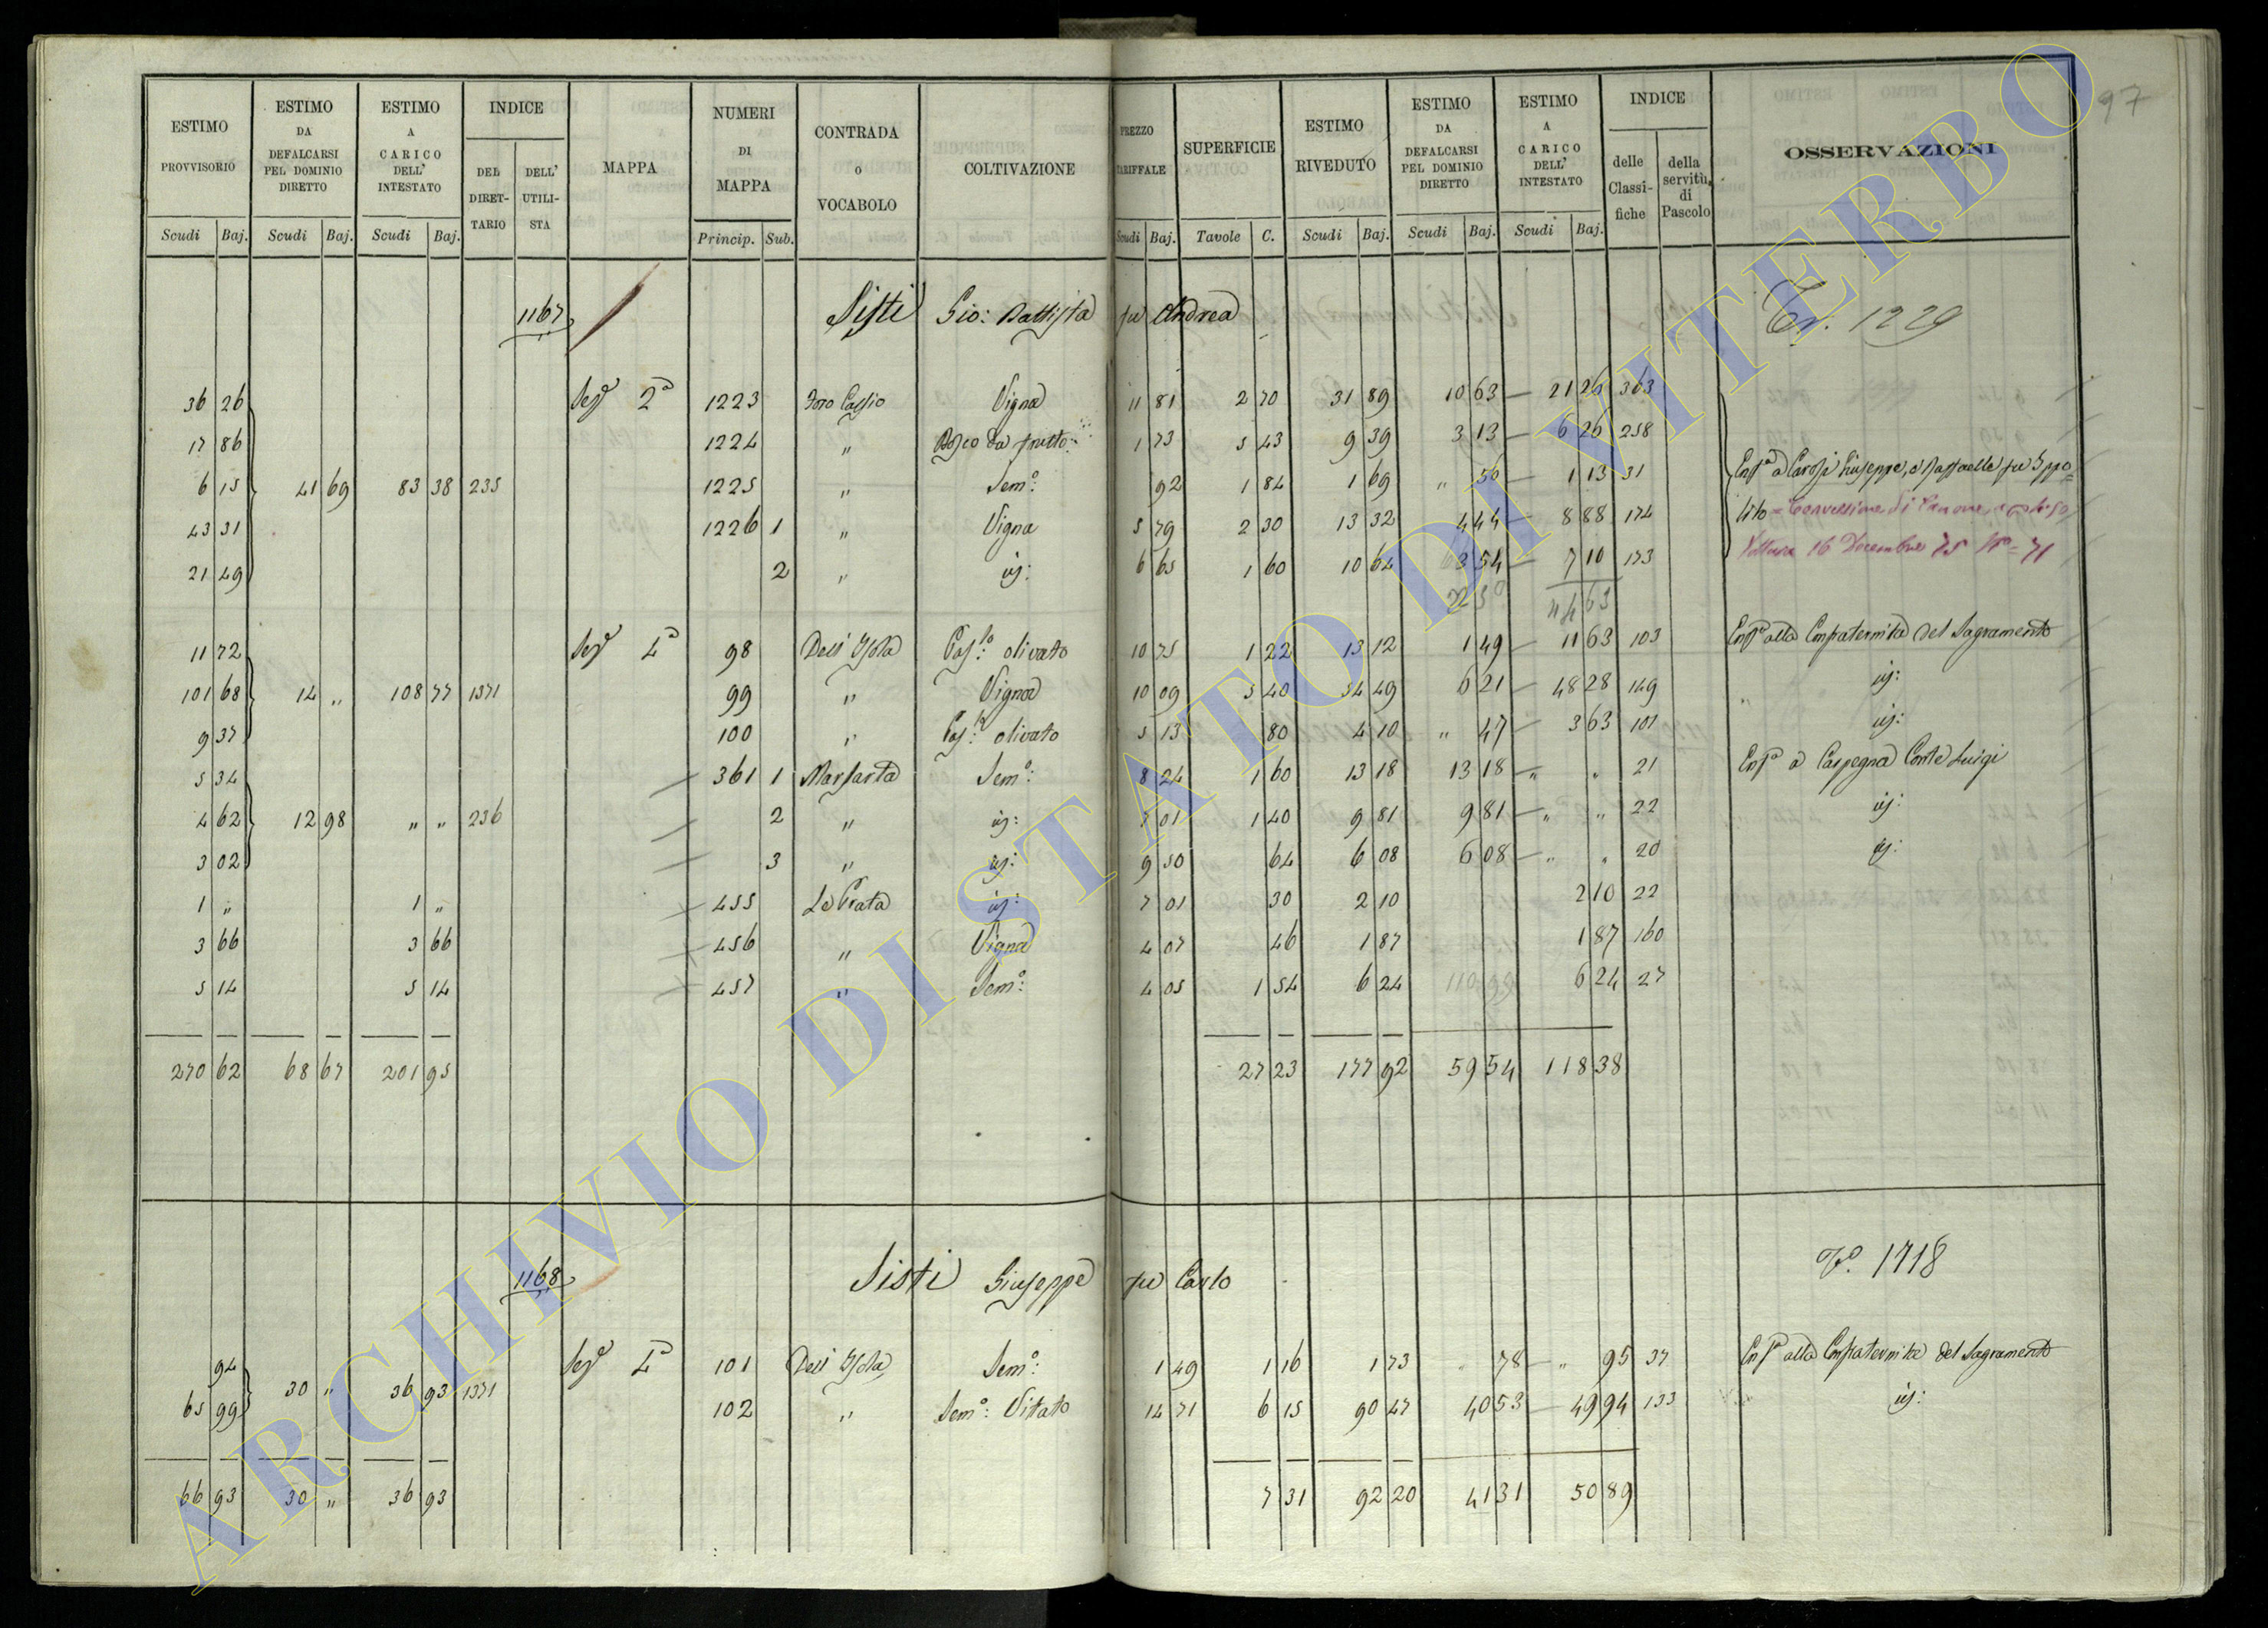 97
ESTIMO PROVVISORIO Scudi Baj.
ESTIMO DA DEFALCARSI PEL DOMINIO DIRETTO Scudi Baj.
ESTIMO A CARICO DELL' INTESTATO Scudi Baj.
INDICE DEL DIRETTARIO DELL' UTILISTA
MAPPA
NUMERI DI MAPPA Princip. Sub.
CONTRADA o VOCABOLO
COLTIVAZIONE
PREZZO TARIFFALE Scudi Baj.
SUPERFICIE Tavole C.
ESTIMO RIVEDUTO Scudi Baj.
ESTIMO DA DEFALCARSI PEL DOMINIO DIRETTO Scudi Baj.
ESTIMO A CARICO DELL' INTESTATO Scudi Baj.
INDICE delle Classifiche della servitù di Pascolo
OSSERVAZIONI
1167 Sisti Gio: Battista fu Andrea 1229
36 26 Sez.e 2a 1223 Foro Cassio Vigna 11 81 2 70 31 89 10 63 — 21 26 363
17 86 1224 " Bosco da frutto 1 73 5 43 9 39 3 13 — 6 26 258
6 15 41 69 83 38 235 1225 " Sem.o: 92 1 84 1 69 " 56 — 1 13 31 Enf.a a Carosi Giuseppe, e Raffaelle fu Ippo=
43 31 1226 1 " Vigna 5 79 2 30 13 32 4 44 — 8 88 174 lito =
21 49 2 " id: 6 65 1 60 10 64 3 54 — 7 10 173 Voltura 16 Decembre 75 No = 71
44 63
11 72 Sez.e 4a 98 Dell' Isola Pas.lo: olivato 10 75 1 22 13 12 1 49 — 11 63 103 Enf.a alla Confraternita del Sagramento
101 68 14 " 108 77 1371 99 " Vigna 10 09 5 40 54 49 6 21 — 48 28 149 id:
9 37 100 " Pas.lo: olivato 5 13 80 4 10 " 47 — 3 63 101 id:
5 34 361 1 Marsarta Sem.o: 8 24 1 60 13 18 13 18 — " " 21 Enf.a a Carpegna Conte Luigi
4 62 12 98 " " 236 2 " id: 7 01 1 40 9 81 9 81 — " " 22 id:
3 02 3 " id: 9 50 64 6 08 6 08 — " " 20 id:
1 " 1 " 455 Le Prata id: 7 01 30 2 10 2 10 22
3 66 3 66 456 " Vigna 4 07 46 1 87 1 87 160
5 14 5 14 457 " Sem.o: 4 05 1 54 6 24 6 24 27
270 62 68 67 201 95 27 23 177 92 59 54 118 38
1168 Sisti Giuseppe fu Carlo 1718
94 Sez.e 4a 101 Dell' Isola Sem.o: 1 49 1 16 1 73 " 78 — " 95 37 Enf.a alla Confraternita del Sagramento
65 99 30 " 36 93 1371 102 " Sem.o: Vitato 14 71 6 15 90 47 40 53 — 49 94 133 id:
66 93 30 " 36 93 7 31 92 20 41 31 50 89
ARCHIVIO DI STATO DI VITERBO